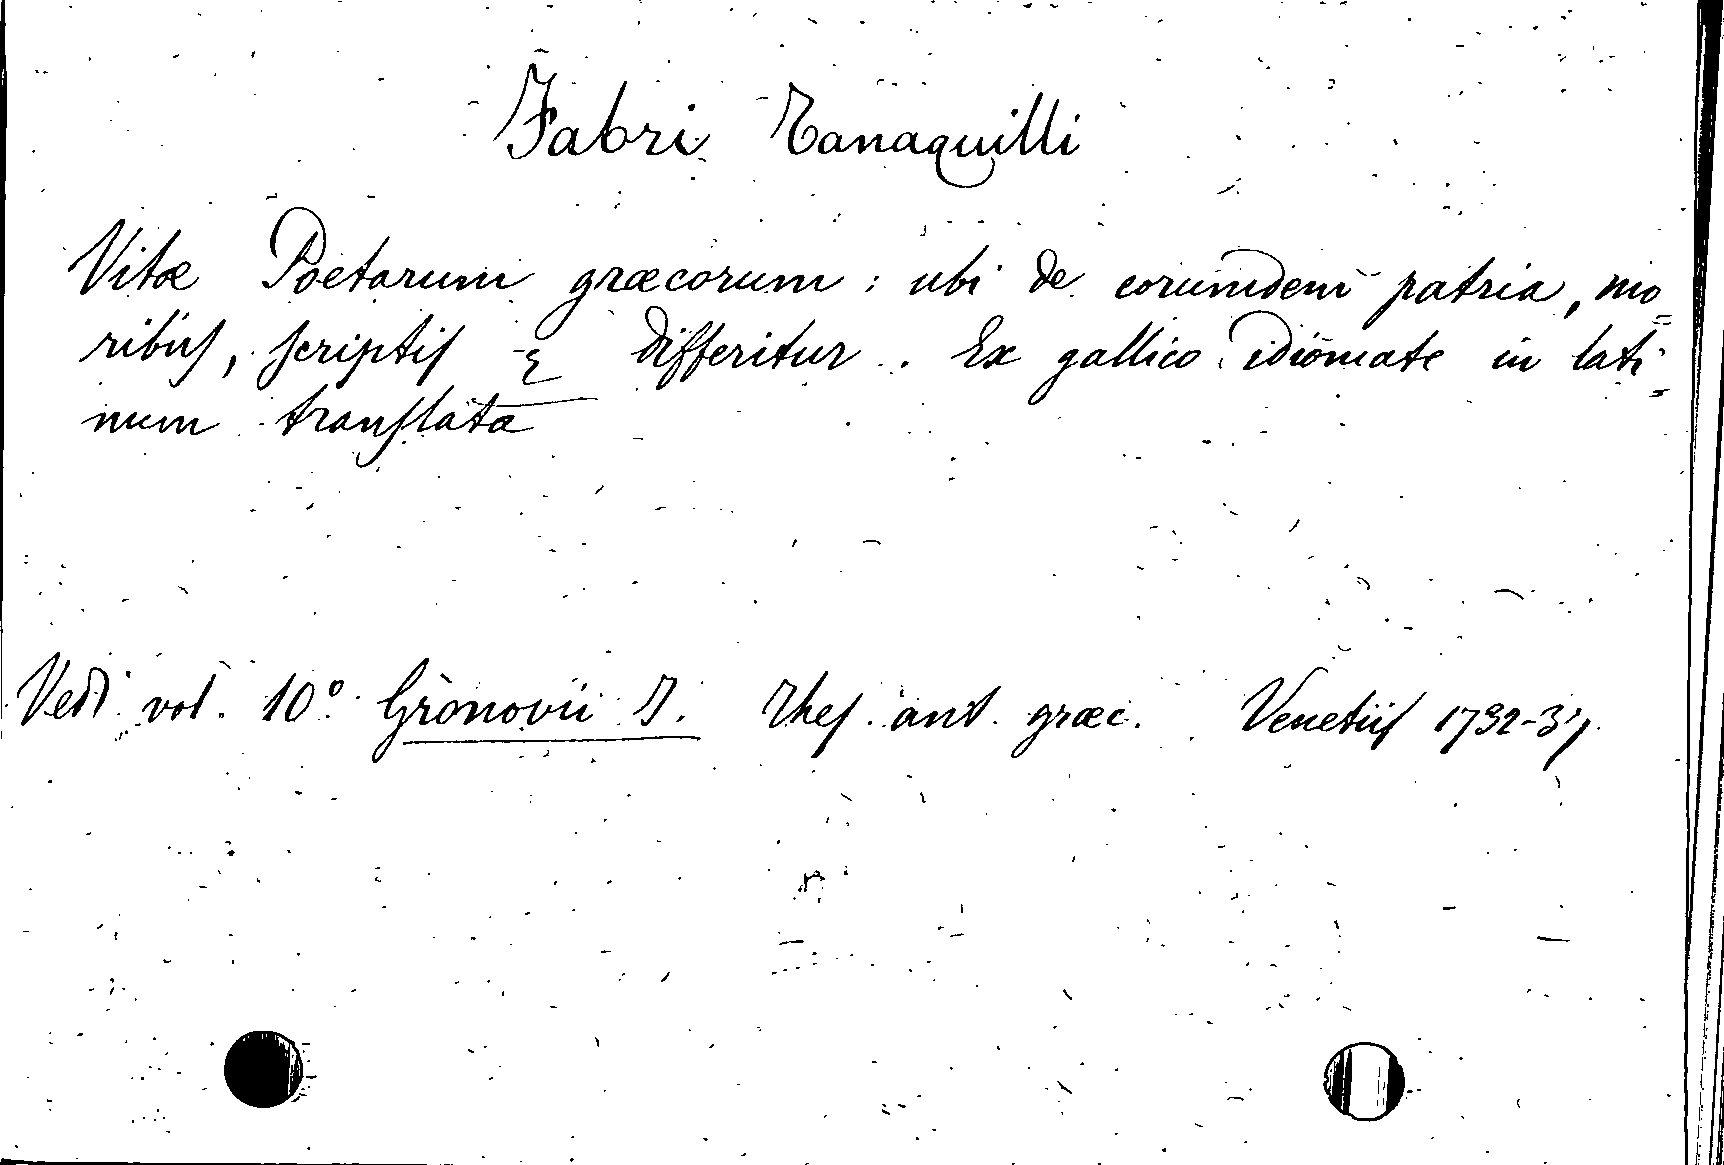 Fabri Tanaquilli
Vitæ Poetarum græcorum : ubi de eorumdem patria, mo=
ribus, scriptis & differitur. Ex gallico idiomate in lati=
num translata
Vedi vol. 10° Gronovii J. Thes. ant. græc. Venetiis 1732-37.